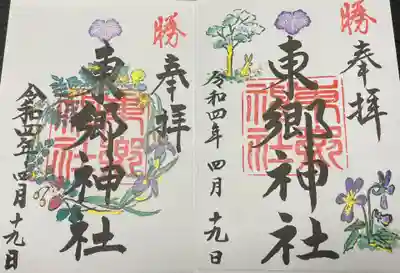 勝
奉拝
東郷神社
令和四年四月十九日
勝
奉拝
東郷神社
令和四年四月十九日